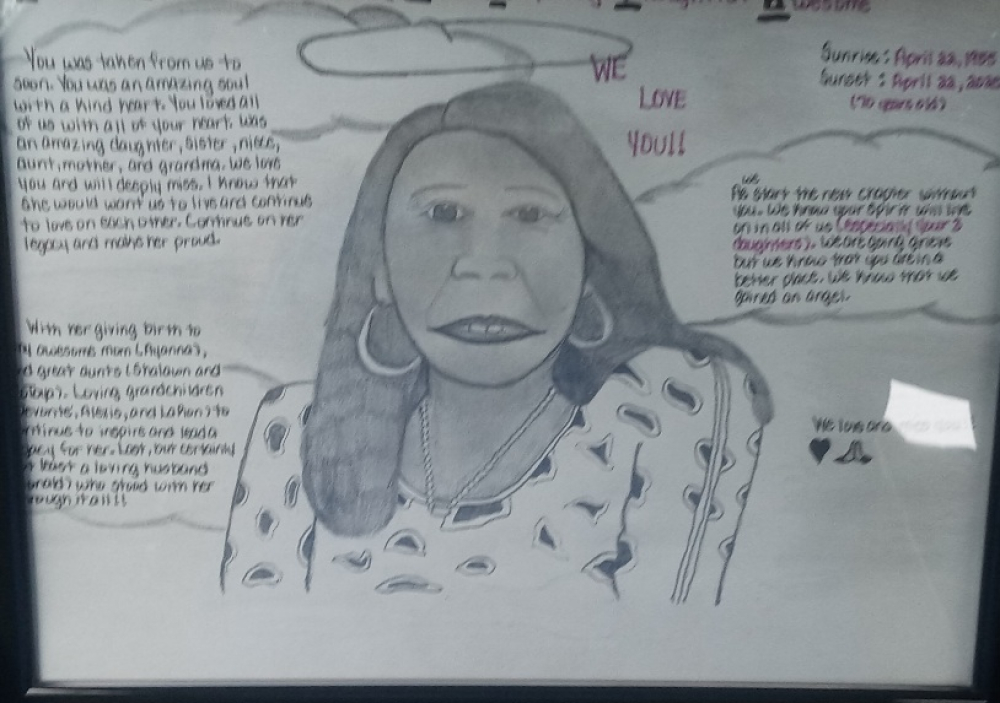 Awesome
You was taken from us to
soon. You was an amazing soul
with a kind heart. You loved all
of us with all of your heart. was
an amazing daughter, sister, niece,
aunt, mother, and grandma. We love
you and will deeply miss. I know that
she would want us to live and continue
to love on each other. Continue on her
legacy and make her proud.
With her giving birth to
awesome mom (Ayanna),
great aunts (Shalawn and
Loving grandchildren
Alexis, and LaDion) to
to inspire and lead a
for her. Last, but certainly
least a loving husband
who stood with her
it all!!
WE
LOVE
YOU!!
Sunrise: April 22, 1955
Sunset: April 22, 2025
(70 years old)
we
As start the next chapter without
you. We know your spirit will live
on in all of us (especially your 3
daughters). We are going grieve
but we know that you are in a
better place. We know that we
gained an angel.
We love and miss you